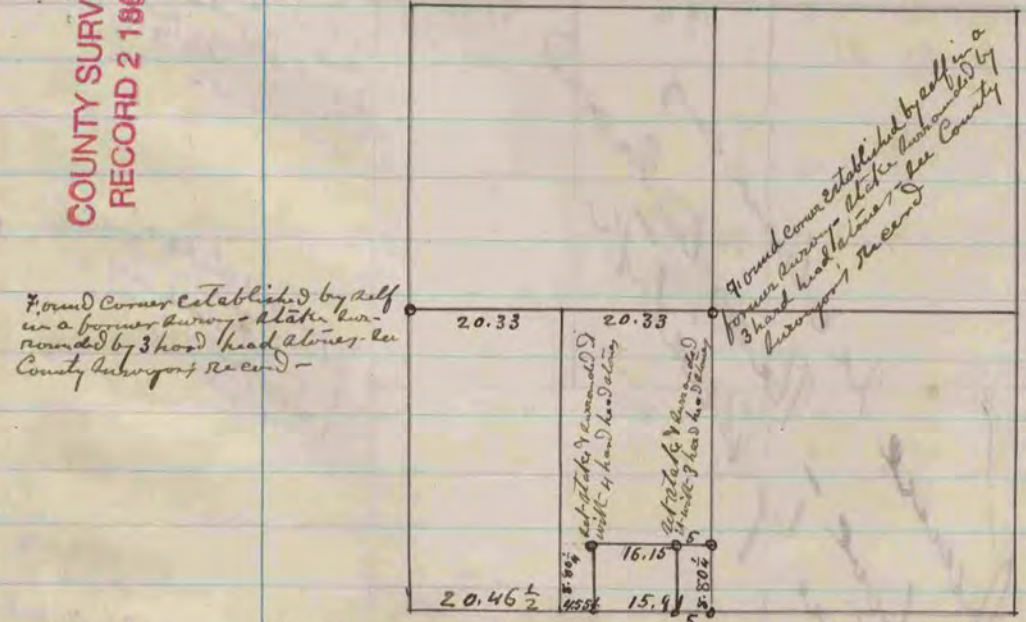 COUNTY SURV
RECORD 2 18
Found Corner established by self
in a former survey - stake sur-
rounded by 3 hard head stones - see
County Surveyors record -
Found corner established by self in a
former survey - stake surrounded by
3 hard head stones - see County
Surveyors record
20.33
20.33
set stake & surrounded it
with 4 hard head stones
set stake & surrounded
it with 3 hard head stones
16.15
5
8.80¼
8.80¼
20.46½
15.91
5